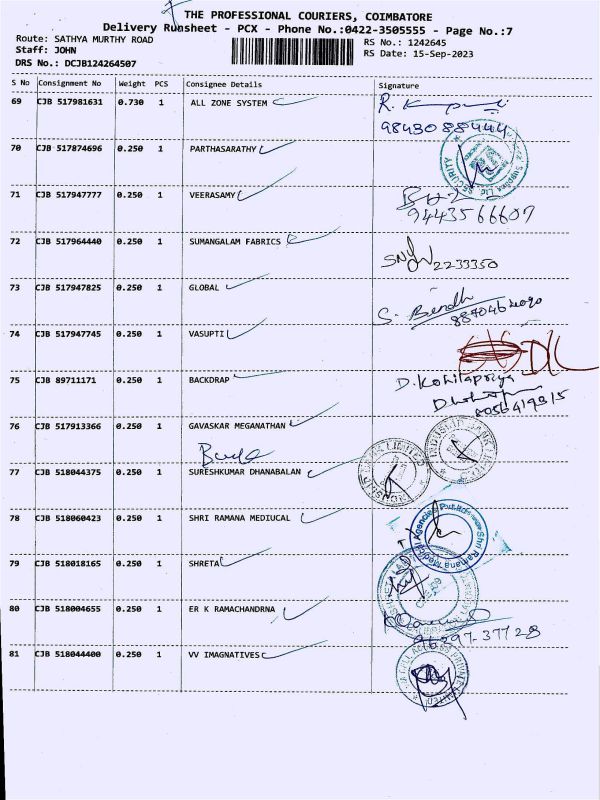 THE PROFESSIONAL COURIERS, COIMBATORE
Delivery Runsheet - PCX - Phone No.:0422-3505555 - Page No.:7
Route: SATHYA MURTHY ROAD RS No.: 1242645
Staff: JOHN RS Date: 15-Sep-2023
DRS No.: DCJB124264507
S No Consignment No Weight PCS Consignee Details Signature
69 CJB 517981631 0.730 1 ALL ZONE SYSTEM
9843088444
70 CJB 517874696 0.250 1 PARTHASARATHY
SECURITY
71 CJB 517947777 0.250 1 VEERASAMY
9443566607
72 CJB 517964440 0.250 1 SUMANGALAM FABRICS
2233350
73 CJB 517947825 0.250 1 GLOBAL
S.
74 CJB 517947745 0.250 1 VASUPTI
75 CJB 89711171 0.250 1 BACKDRAP D. Kohilapriya
8056419315
76 CJB 517913366 0.250 1 GAVASKAR MEGANATHAN
77 CJB 518044375 0.250 1 SURESHKUMAR DHANABALAN
78 CJB 518060423 0.250 1 SHRI RAMANA MEDIUCAL
Shri Ramana Medical Agencies
79 CJB 518018165 0.250 1 SHRETA
80 CJB 518004655 0.250 1 ER K RAMACHANDRNA
96297-37728
81 CJB 518044400 0.250 1 VV IMAGNATIVES